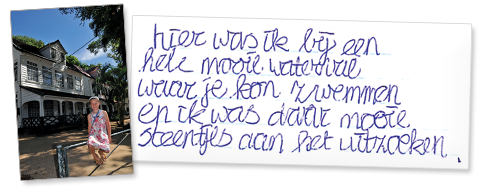 hier was ik bij een
hele mooie waterval
waar je kon zwemmen
en ik was daar mooie
steentjes aan het uitzoeken.